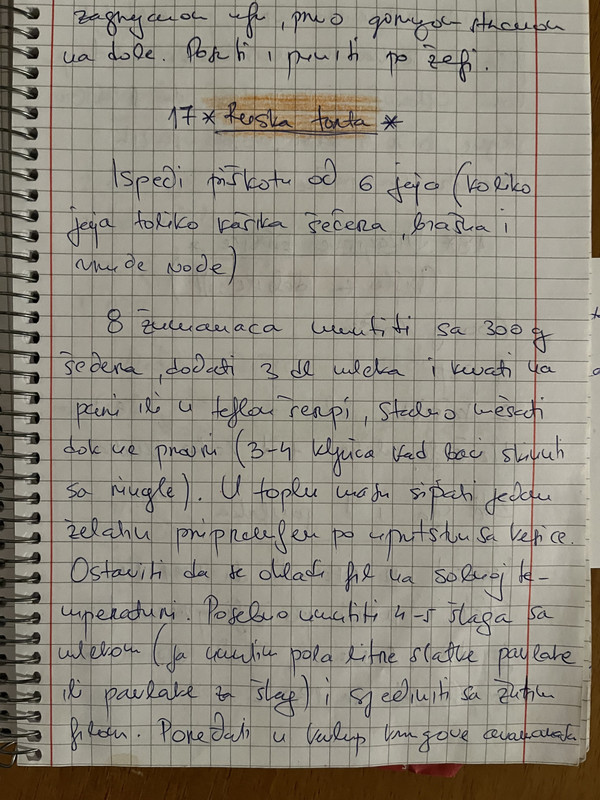 na dole. Peći i puniti po želji.
17 * Ruska torta *
Ispeći piškotu od 6 jaja (koliko
jaja toliko kašika šećera, brašna i
vruće vode)
8 žumanaca umutiti sa 300 g
šećera, dodati 3 dl mleka i kuvati na
pari ili u teflon šerpi, stalno mešati
dok ne provri (3-4 ključa kad baci skinuti
sa ringle). U toplu masu sipati jednu
želatin pripremljen po uputstvu sa kesice.
Ostaviti da se ohladi fil na sobnoj te-
mperaturi. Posebno umutiti 4-5 šlaga sa
mlekom (ja umutim pola litre slatke pavlake
ili pavlake za šlag) i sjediniti sa žutim
filom. Poređati u kalup krugove ananasa